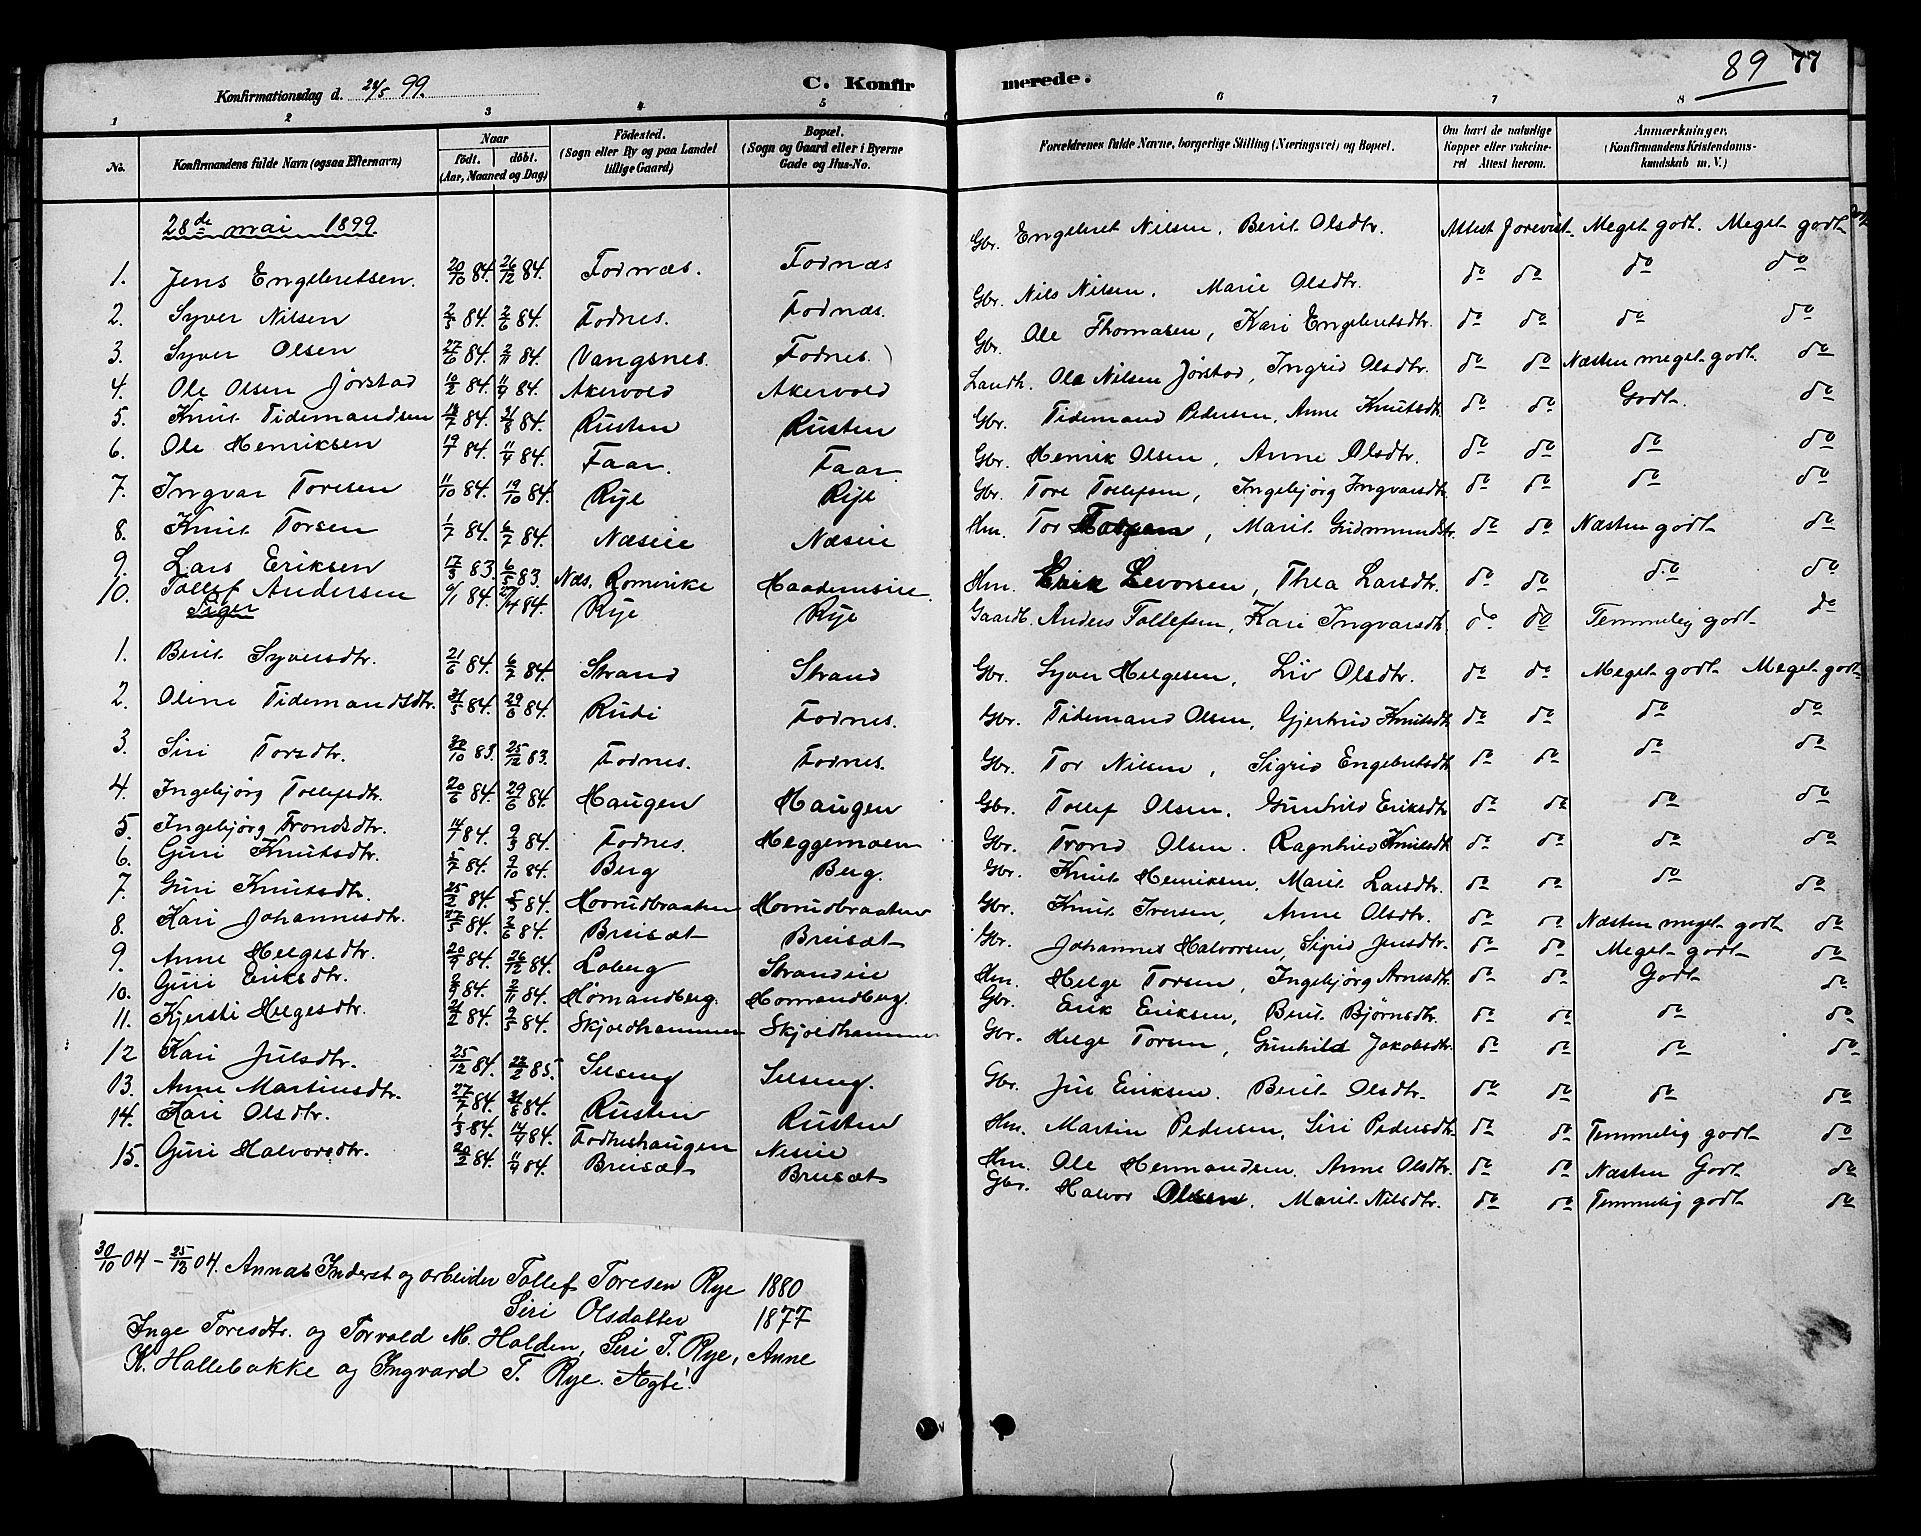 Konfirmationsdag d. 28/5 99. C. Konfirmerede. 89 77
1 2 3 4 5 6 7 8
No. Konfirmandens fulde Navn (ogsaa Efternavn) Naar födt. döbt. (Aar, Maaned og Dag) Födested. (Sogn eller By og paa Landet tillige Gaard) Bopæl. (Sogn og Gaard eller i Byerne Gade og Hus-No. Forældrenes fulde Navne, borgerlige Stilling (Næringsvei) og Bopæl. Om havt de naturlige Kopper eller vakcineret Attest herom. Anmærkninger, (Konfirmandens Kristendomskundskab m. V.)
28de mai 1899
1. Jens Engebretsen. 20/10 84. 26/12 84. Fodnæs. Fodnæs Gbr. Engebret Nilsen, Berit Olsdtr. Attest forevist. Meget godt. Meget godt
2. Syver Nilsen 2/5 84. 2/6 84. Fodnes. Fodnæs. Gbr. Nils Nilsen, Marie Olsdtr. do do do do
3. Syver Olsen 27/6 84. 2/11 84. Vangsnes. Fodnes. Gbr. Ole Thomasen, Kari Engebretsdtr. do do do do
4. Ole Olsen Jørstad 10/2 84. 11/4 84. Akervold Akervold Landh. Ole Nilsen Jørstad, Ingrid Olsdtr. do do Næsten meget godt. do
5. Knut Tidemandsen 18/7 84. 31/8 84. Rusten Rusten Gbr. Tidemand Pedersen, Anne Knutsdtr. do do Godt. do
6. Ole Henriksen 19/1 84. 11/4 84. Faar. Faar. Gbr. Henrik Olsen, Anne Olsdtr. do do do do
7. Ingvar Toresen 11/10 84. 19/10 84. Rye Rye Gbr. Tore Tollefsen, Ingebjørg Ingvarsdtr. do do do do
8. Knut Torsen 1/7 84. 6/7 84. Næseie Næseie Hm. Tor, Marit Gudmundsdtr. do do Næsten godt do
9. Lars Eriksen 17/3 83. 6/5 83. Næs, Romerike Haademseie. Hm. Erik Levorsen, Thea Larsdtr. do do do do
10. Tollef Andersen 6/1 84. 27/4 84. Rye Rye Gaardb. Anders Tollefsen, Kari Ingvarsdtr. do do Temmelig godt. do
Piger
1. Berit Syversdtr. 21/6 84. 6/7 84. Strand Strand Gbr. Syver Helgesen, Liv Olsdtr. do do Meget godt Meget godt
2. Oline Tidemandsdtr. 31/5 84. 29/6 84. Rudi Fodnes. Gbr. Tidemand Olsen, Gjertrud Knutsdtr. do do do do
3. Siri Torsdtr. 30/10 83. 25/12 83. Fodnes. Fodnes. Gbr. Tor Nilsen, Sigrid Engebretsdtr. do do do do
4. Ingebjørg Tollefsdtr. 20/6 84. 29/6 84. Haugen Haugen Gbr. Tollef Olsen, Gunhild Eriksdtr. do do do do
5. Ingebjørg Trondsdtr. 14/1 84. 9/3 84. Fodnes. Heggemoen Gbr. Trond Olsen. Ragnhild Knutsdtr. do do do do
6. Guri Knutsdtr. 5/7 84. 9/10 84. Berg Berg. Gbr. Knut Henriksen, Marit Larsdtr. do do do do
7. Guri Knutsdtr. 25/2 84. 5 84. Hovrudbraaten Hovrudbraaten Gbr. Knut Iversen, Anne Olsdtr. do do Næsten meget godt do
8. Kari Johannesdtr. 27/5 84. 2/6 84. Breisæt Breisæt Gbr. Johannes Halvorsen, Sigrid Jensdtr. do do Meget godt do
9. Anne Helgesdtr. 20/9 84. 26/12 84. Loberg Strandeie Hm. Helge Torsen, Ingebjørg Arnesdtr. do do Godt do
10. Guri Eriksdtr. 2/9 84. 2/11 84. Hømandberg. Homandberg. Gbr. Erik Eriksen, Berit Bjørnsdtr. do do do do
11. Kjersti Helgesdtr. 21/2 84. 9/5 84. Skjoldhammer Skjoldhammer Gbr. Helge Torsen, Gunhild Jakobsdtr. do do do do
12 Kari Julsdtr. 25/12 84. 22/2 85. Selseng Selseng. Gbr. Jul Eriksen. Berit Olsdtr. do do do do
13. Anne Martinsdtr. 27/7 84. 31/8 84. Rusten Rusten Hm. Martin Pedersen, Siri Pedersdtr. do do Temmelig godt do
14. Kari Olsdtr. 1/3 84. 14/4 84. Fodneshaugen Neseie Hm. Ole Hermandsen, Anne Olsdtr. do do Næsten Godt do
15. Guri Halvorsdtr. 20/2 84. 11/4 84. Breisæt Breisæt Gbr. Halvor Olsen, Marit Nilsdtr. do do Temmelig godt do
30/10 04 - 25/12 04. Anna. Inderst og arbeider Tollef Toresen Rye 1880
Siri Olsdatter 1877
Inge Toresdtr. og Torvald M. Halden, Siri T. Rye, Anne
K. Hallebakke og Ingvard T. Rye. Ægte